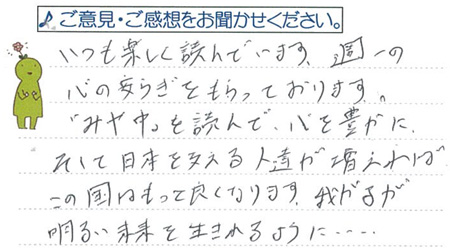 ご意見・ご感想をお聞かせください。
いつも楽しく読んでいます。週一の
心の安らぎをもらっております。
「みや中」を読んで、心を豊かに、
そして日本を支える人達が増えれば
この国はもっと良くなります。我が子が
明るい未来を生きれるように‥‥